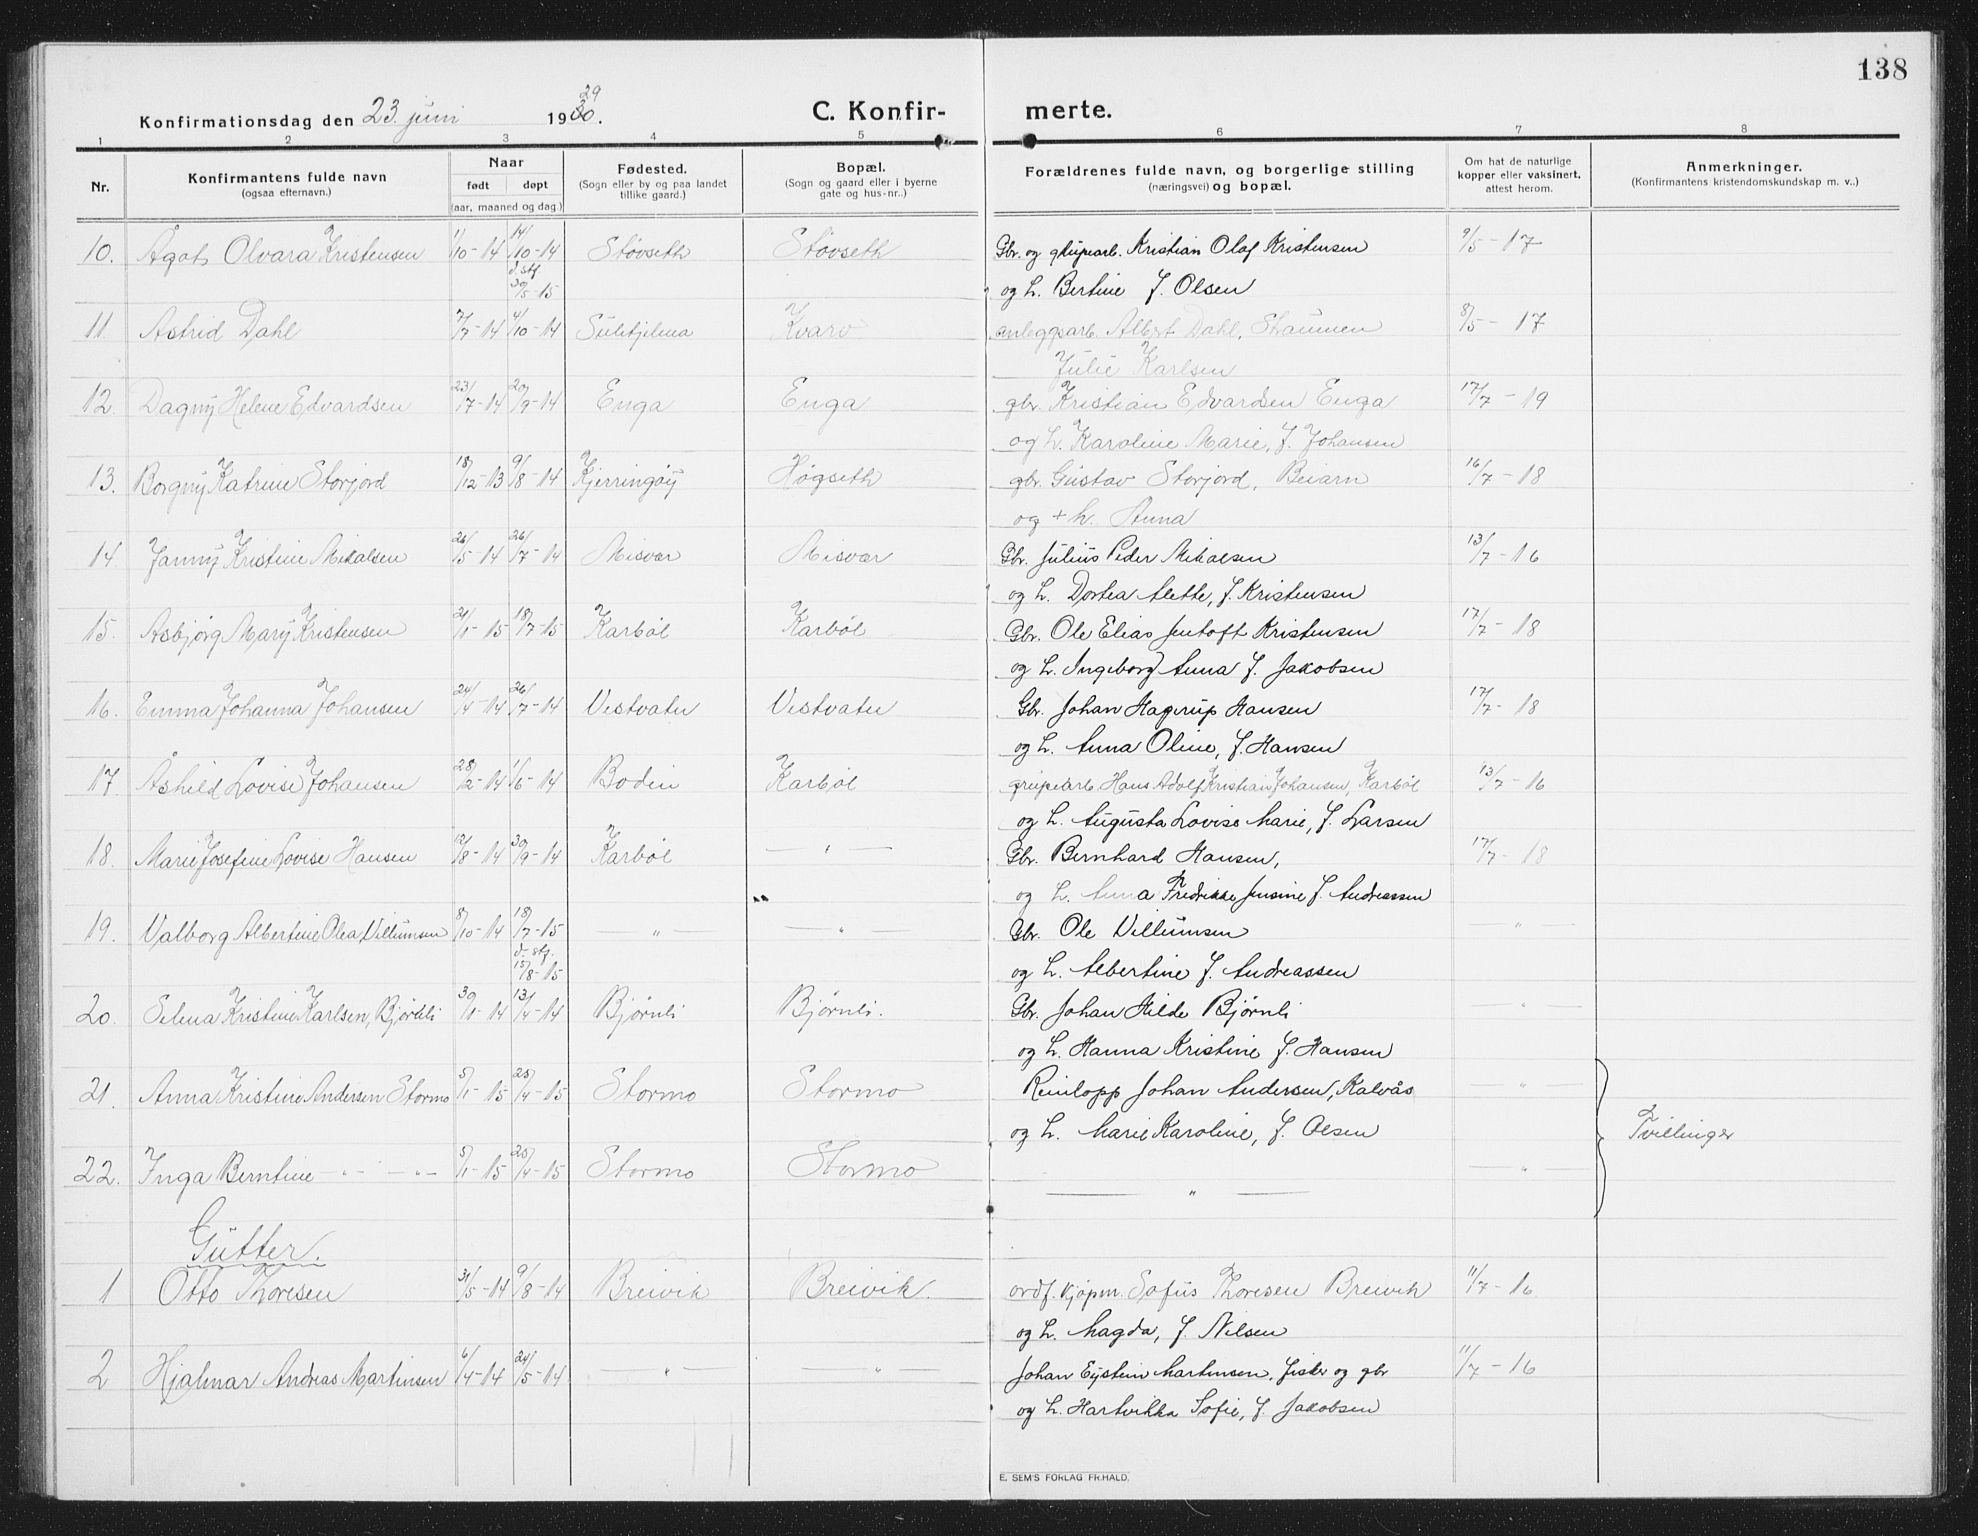 138
Konfirmationsdag den 23. juni 1930. 29
C. Konfir- merte.
1 2 3 4 5 6 7 8
Nr.
Konfirmantens fulde navn
(ogsaa efternavn.)
Naar
født døpt
(aar, maaned og dag.)
Fødested.
(Sogn eller by og paa landet
tillike gaard.)
Bopæl.
(Sogn og gaard eller i byerne
gate og hus-nr.)
Forældrenes fulde navn, og borgerlige stilling
(næringsvei) og bopæl.
Om hat de naturlige
kopper eller vaksinert,
attest herom.
Anmerkninger.
(Konfirmantens kristendomskundskap m. v.)
10. Ågot Olvara Kristensen 1/10-14 14/10-14 Støvseth Støvseth Gbr. og grupearb. Kristian Olaf Kristensen 9/5-17
d. stf. 30/5-15 og h. Bertine f. Olsen
11. Astrid Dahl 7/7-14 4/10-14 Sulitjelma Kvarv anleggsarb. Albert Dahl, Straumen 8/5-17
Julie Karlsen
12. Dagny Helene Edvardsen 23/7-14 20/9-14 Enga Enga gbr. Kristian Edvardsen Enga 17/7-19
og h. Karoline Marie, f. Johansen
13. Borgny Katrine Storjord 18/12-13 9/8-14 Kjerringøy Høgseth gbr. Gustav Storjord, Beiarn 16/7-18
og + h. Anna
14. Janny Kristine Mikalsen 26/5-14 26/7-14 Misvær Misvær Gbr. Julius Peder Mikalsen 13/7-16
og h. Dortea Alette, f. Kristensen
15. Asbjørg Mary Kristensen 21/1-15 18/7-15 Karbøl Karbøl Gbr. Ole Elias Jentoft Kristensen 17/7-18
og h. Ingeborg Anna f. Jakobsen
16. Emma Johanna Johansen 24/4-14 26/7-14 Vestvatn Vestvatn Gbr. Johan Hagerup Hansen 17/7-18
og h. Anna Oline, f. Hansen
17. Åshild Lovise Johansen 28/2-14 1/6-14 Bodin Karbøl grupearb Hans Adolf Kristian Johansen, Karbøl 13/7-16
og h. Augusta Lovise Marie, f. Larsen
18. Marie Josefine Lovise Hansen 12/8-14 30/9-14 Karbøl — " — Gbr. Bernhard Hansen, 17/7-18
og h. Anna Fredrikke Jensine f. Andreassen
19. Valborg Albertine Olea Villumsen 8/10-14 18/7-15 — " — — " — Gbr. Ole Villumsen — " —
d. stf. 15/8-15 og h. Albertine f. Andreassen
20. Selena Kristine Karlsen, Bjørnli 30/1-14 13/4-14 Bjørnli Bjørnli. Gbr. Johan Hilde Bjørnli — " —
og h. Hanna Kristine f. Hansen
21. Anna Kristine Andersen Stormo 5/1-15 25/4-15 Stormo Stormo Reinlapp Johan Andersen, Kalvås — " —
og h. Marie Karoline, f. Olsen Tvillinger
22. Inga Berntine — " — — " — 5/1-15 25/4-15 Stormo Stormo — " — — " —
Gutter.
1 Otto Thoresen 31/5-14 9/8-14 Breivik Breivik. ordf. kjøpm. Sofus Thoresen Breivik 11/7-16
og h. Magda, f. Nilsen
2 Hjalmar Andreas Martinsen 6/4-14 24/5-14 — " — — " — Johan Eystein Martinsen, fisker og gbr 11/7-16
og h. Hartvikka Sofie, f. Jakobsen
E. SEM'S FORLAG FR.HALD.